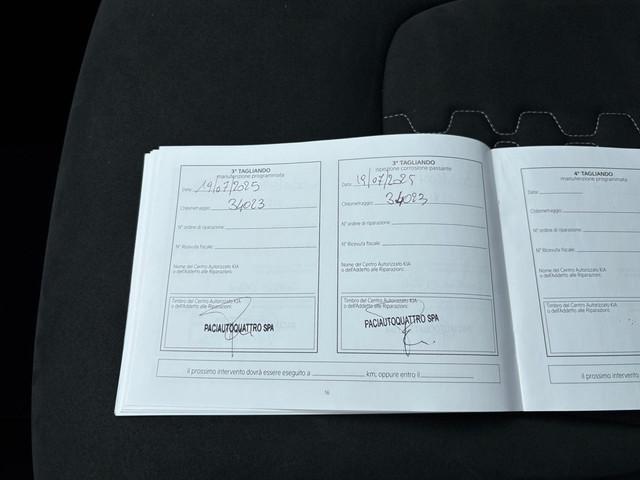 3° TAGLIANDO
manutenzione programmata
Data: 19/07/2025
Chilometraggio: 34023
N° ordine di riparazione:
N° Ricevuta fiscale:
Nome del Centro Autorizzato KIA
o dell'Addetto alle Riparazioni:
Timbro del Centro Autorizzato KIA
o dell'Addetto alle Riparazioni:
PACIAUTOQUATTRO SPA
3° TAGLIANDO
ispezione corrosione passante
Data: 19/07/2025
Chilometraggio: 34023
N° ordine di riparazione:
N° Ricevuta fiscale:
Nome del Centro Autorizzato KIA
o dell'Addetto alle Riparazioni:
Timbro del Centro Autorizzato KIA
o dell'Addetto alle Riparazioni:
PACIAUTOQUATTRO SPA
il prossimo intervento dovrà essere eseguito a km; oppure entro il
16
4° TAGLIANDO
manutenzione programmata
Data:
Chilometraggio:
N° ordine di riparazione:
N° Ricevuta fiscale:
Nome del Centro Autorizzato KIA
o dell'Addetto alle Riparazioni:
Timbro del Centro Autorizzato KIA
o dell'Addetto alle Riparazioni:
il prossimo intervento